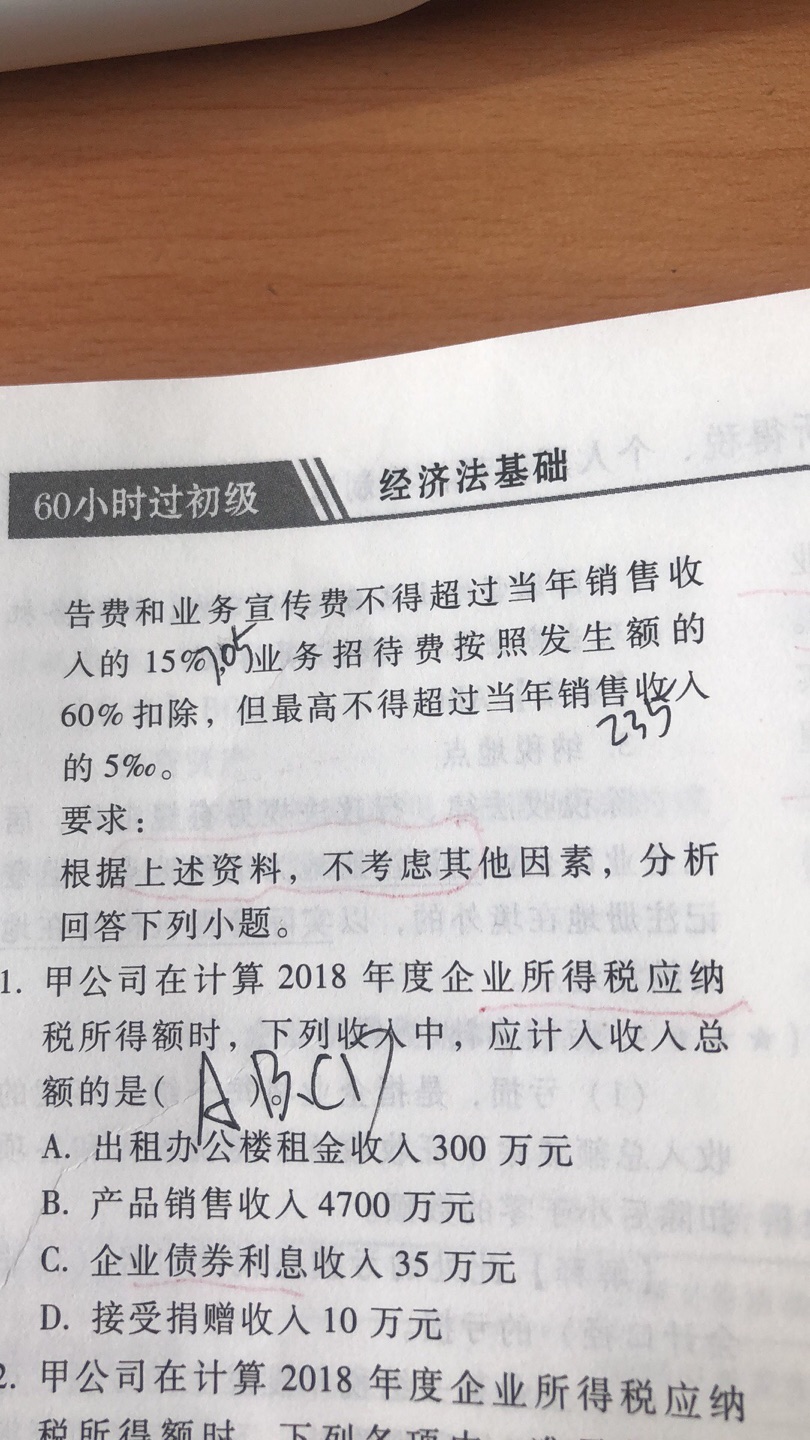 60小时过初级
经济法基础
告费和业务宣传费不得超过当年销售收
入的 15%，业务招待费按照发生额的
60% 扣除，但最高不得超过当年销售收入
235
的 5‰。
要求：
根据上述资料，不考虑其他因素，分析
回答下列小题。
1. 甲公司在计算 2018 年度企业所得税应纳
税所得额时，下列收入中，应计入收入总
额的是( ABCD )。
A. 出租办公楼租金收入 300 万元
B. 产品销售收入 4700 万元
C. 企业债券利息收入 35 万元
D. 接受捐赠收入 10 万元
2. 甲公司在计算 2018 年度企业所得税应纳
税所得额时，下列各项中，准